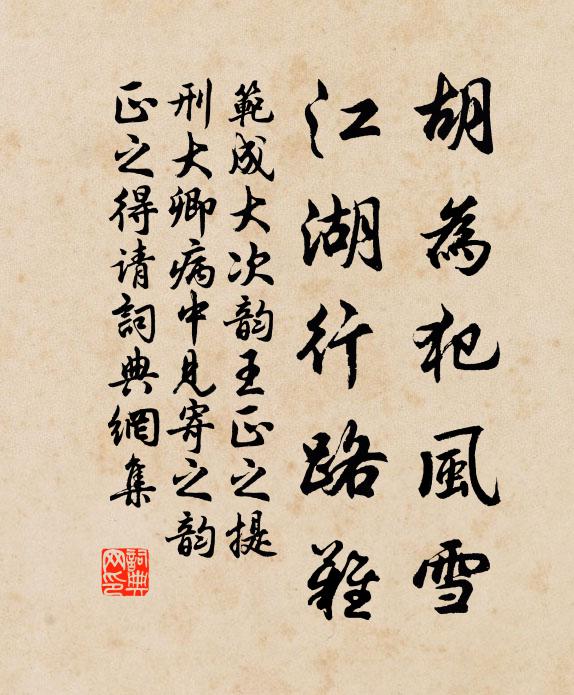 胡為犯風雪
江湖行路難
範成大次韵王正之提
刑大卿病中見寄之韵
正之得请詞典網集
詞典网印